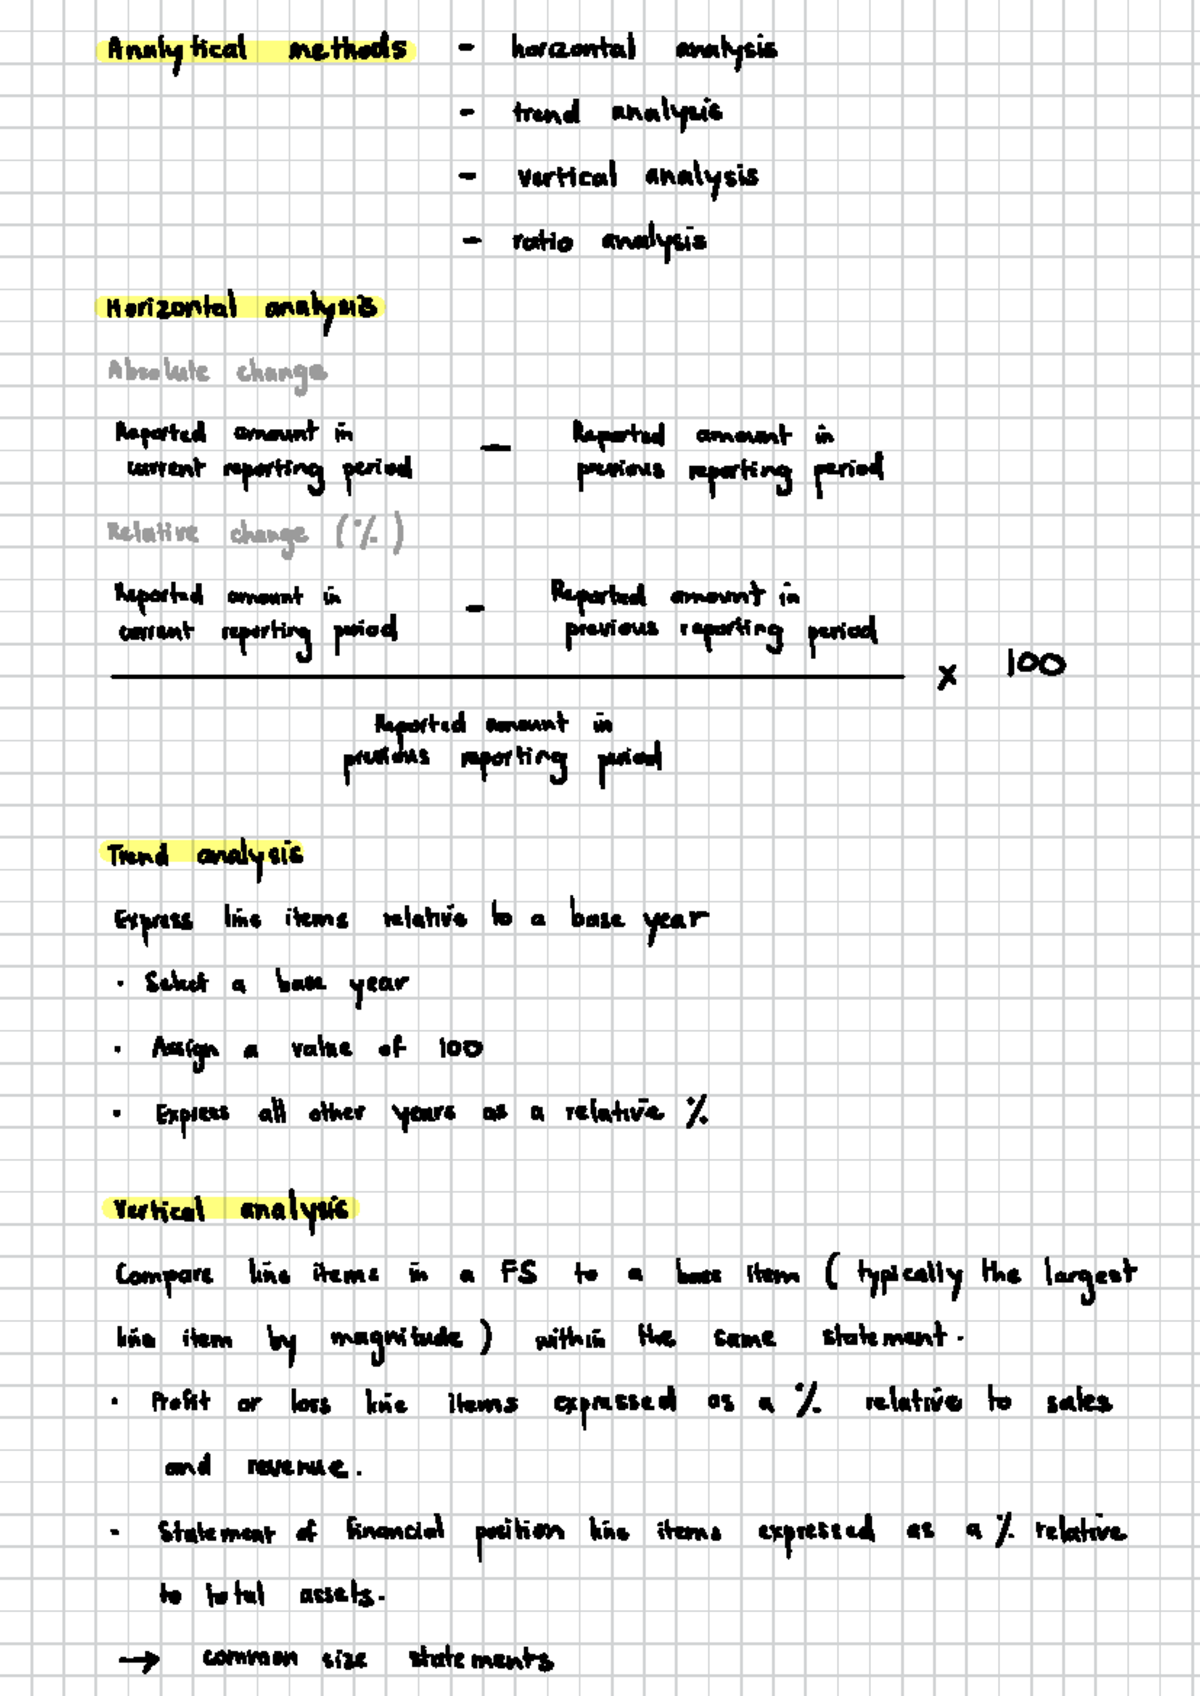 Analytical methods - horizontal analysis
- trend analysis
- vertical analysis
- ratio analysis
Horizontal analysis
Absolute change
Reported amount in current reporting period - Reported amount in previous reporting period
Relative change (%)
Reported amount in current reporting period - Reported amount in previous reporting period
x 100
Reported amount in
previous reporting period
Trend analysis
Express line items relative to a base year
· Select a base year
· Assign a value of 100
· Express all other years as a relative %
Vertical analysis
Compare line items in a FS to a base item (typically the largest
line item by magnitude) within the same statement.
· Profit or loss line items expressed as a % relative to sales
and revenue.
- Statement of financial position line items expressed as a % relative
to total assets.
→ common size statements